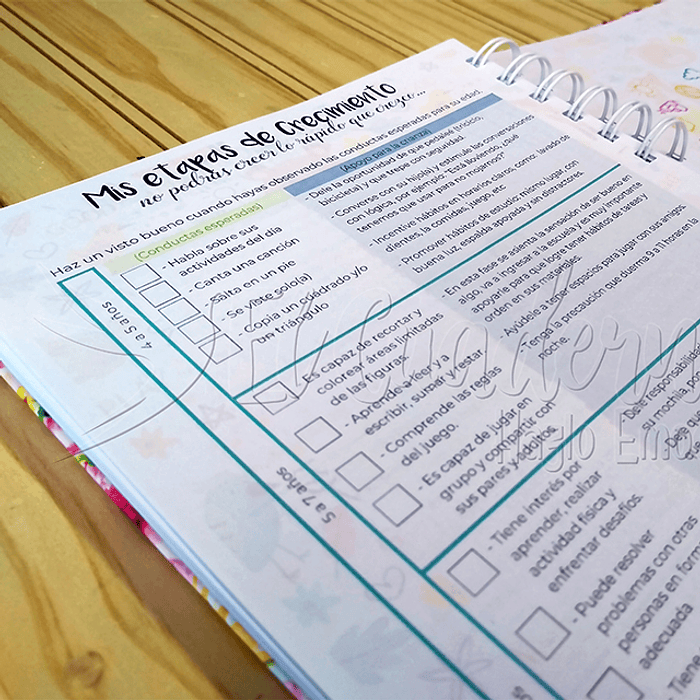 Mis etapas de Crecimiento
no podrás creer lo rápido que crezco...
Haz un visto bueno cuando hayas observado las conductas esperadas para su edad.
(Conductas esperadas)
(Apoyo para la crianza)
4 a 5 años
- Habla sobre sus
actividades del día
- Canta una canción
- Salta en un pie
- Se viste solo(a)
- Copia un cuadrado y/o
un triángulo
- Dele la oportunidad de que pedaleé (triciclo,
bicicleta), y que trepe con seguridad.
- Converse con su hijo(a) y estimule las conversaciones
con lógica, por ejemplo: "Está lloviendo, ¿qué
tenemos que usar para no mojarnos?
- Incentive hábitos en horarios claros, como: lavado de
dientes, la comidas, juego, etc.
- Promover hábitos de estudio: mismo lugar con
buena luz, espalda apoyada y sin distractores.
5 a 7 años
- Es capaz de recortar y
colorear áreas limitadas
de las figuras.
- Aprende a leer y a
escribir, sumar y restar.
- Comprende las reglas
del juego.
- Es capaz de jugar en
grupo y compartir con
sus pares y adultos.
- En esta fase se asienta la sensación de ser bueno en
algo, va a ingresar a la escuela y es muy importante
apoyarle para que logre tener hábitos de tareas y
orden en sus materiales.
- Ayúdele a tener espacios para jugar con sus amigos.
- Tenga la precaución que duerma 9 a 11 horas en
noche.
- Tiene interés por
aprender, realizar
actividad física y
enfrentar desafíos.
- Puede resolver
problemas con otras
personas en
adecuada
- Tiene
- Dele responsabilidades
su mochila,
Hazlo